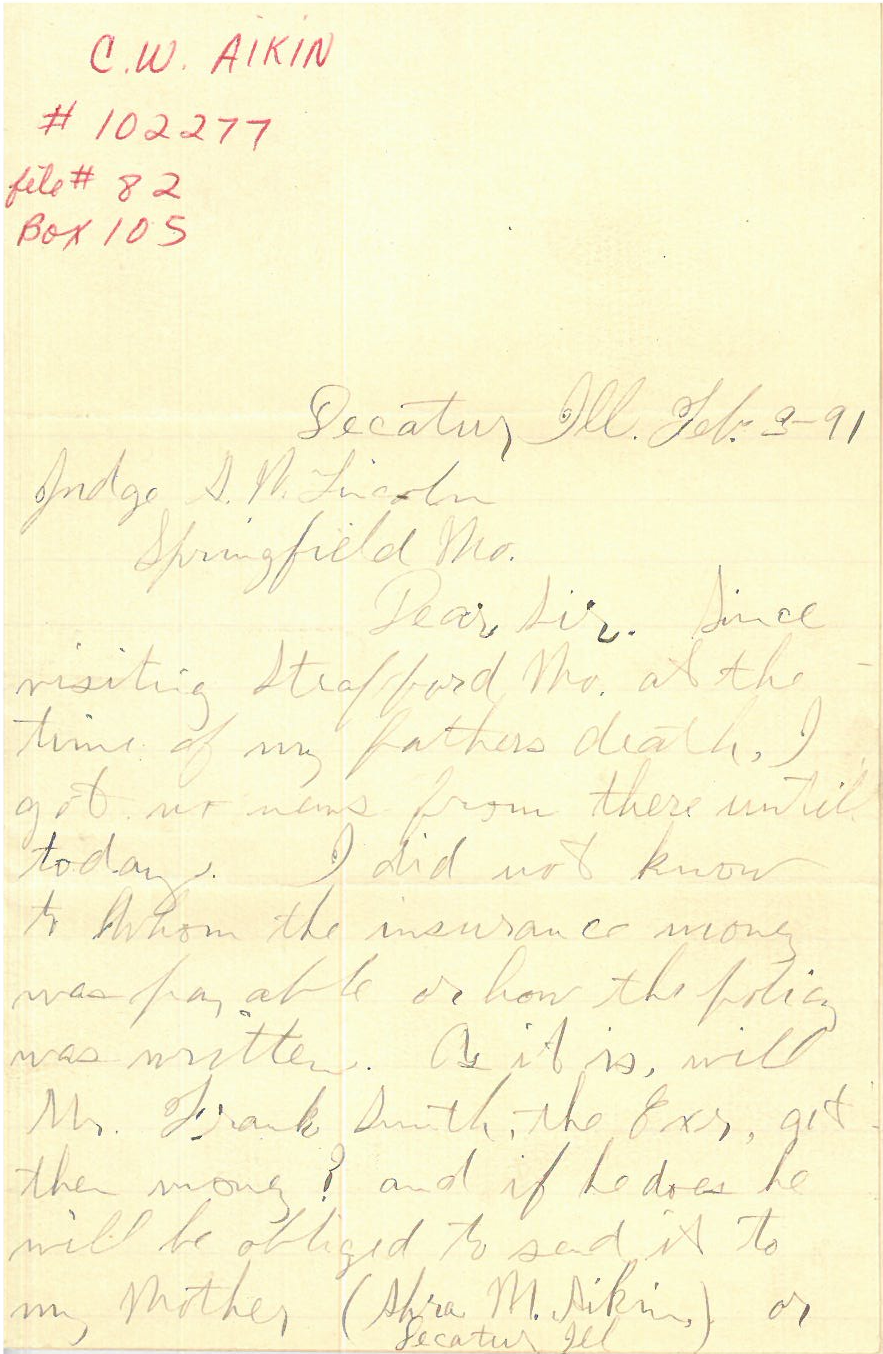 C.W. AIKIN
# 102277
file # 82
Box 105
Decatur Ill. Feb. 3-91
Judge Lincoln
Springfield Mo.
Dear Sir. Since
visiting Strafford Mo. at the
time of my fathers death, I
got no news from there until
today. I did not know
to Whom the insurance money
was payable or how the policy
was written. As it is, will
Mr. Frank Smith, the Exr, get
then money? and if he does he
will be obliged to send it to
my Mother (M. Aikin,) or
Decatur Ill